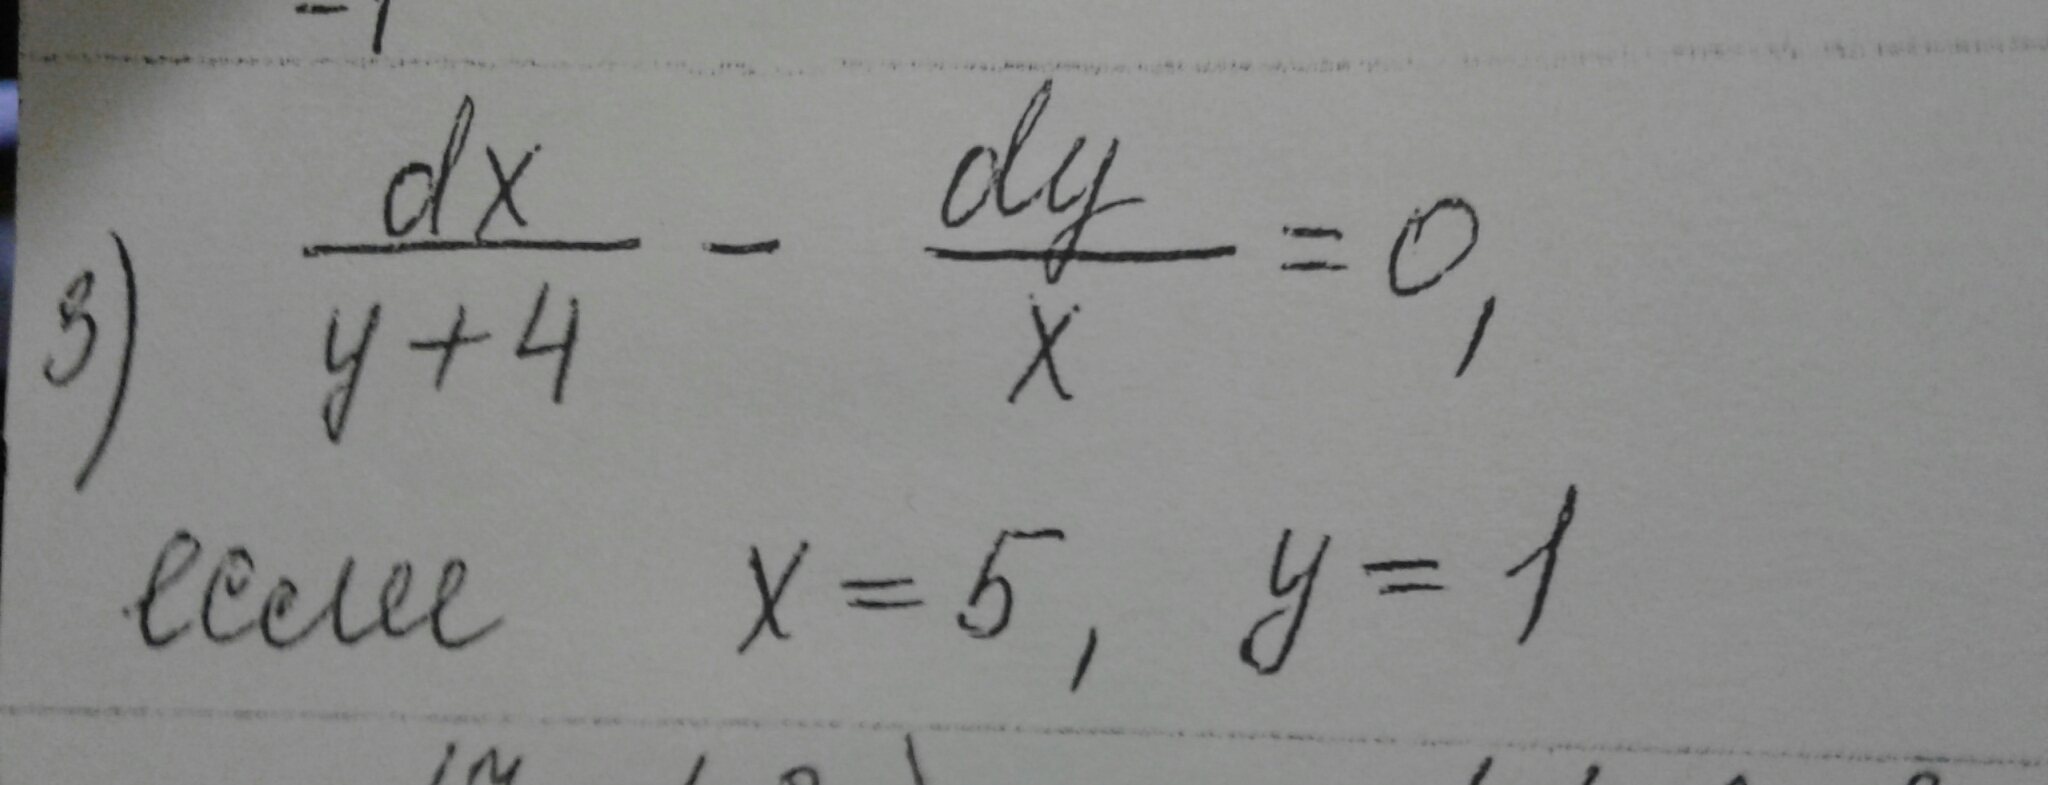 -1
3) dx/(y+4) - dy/x = 0,
если x = 5, y = 1